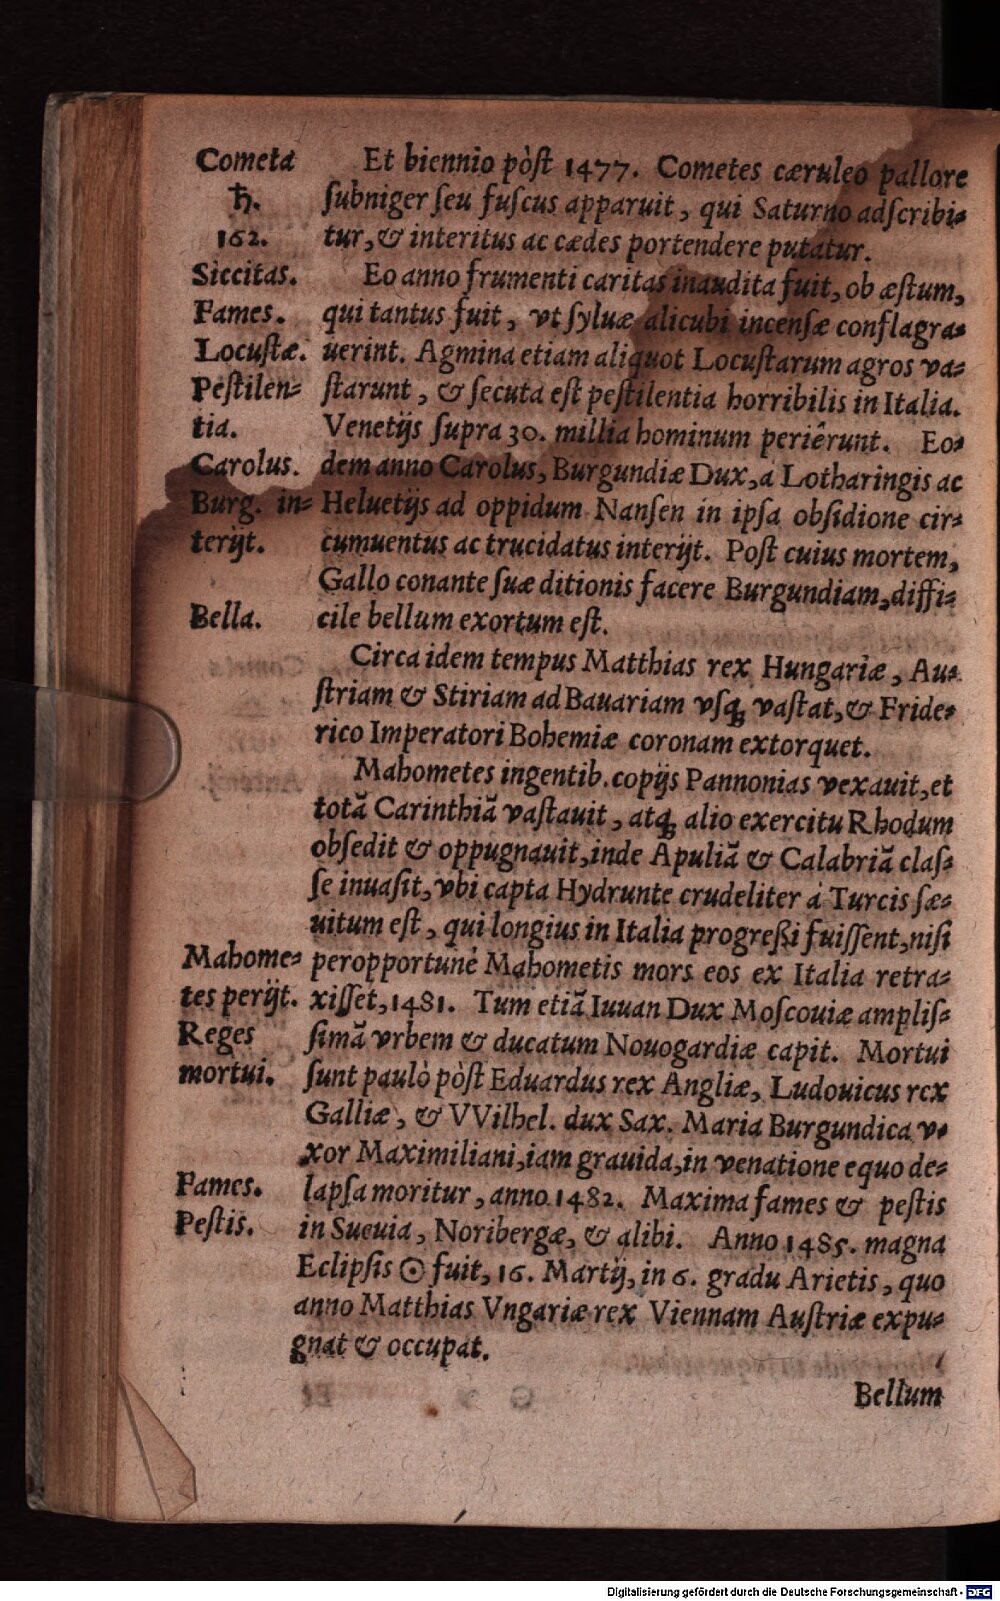 Cometa
♄.
162.
Siccitas.
Fames.
Locuſtæ.
Peſtilen-
tia.
Carolus.
Burg. in-
terijt.
Bella.
Mahome-
tes perijt.
Reges
mortui.
Fames.
Peſtis.
Et biennio pòſt 1477. Cometes cæruleo pallore
ſubniger ſeu fuſcus apparuit, qui Saturno adſcribi-
tur, & interitus ac cædes portendere putatur.
Eo anno frumenti caritas inaudita fuit, ob æſtum,
qui tantus fuit, vt ſyluæ alicubi incenſæ conflagra-
uerint. Agmina etiam aliquot Locuſtarum agros va-
ſtarunt, & ſecuta eſt peſtilentia horribilis in Italia.
Venetijs ſupra 30. millia hominum periêrunt. Eo-
dem anno Carolus, Burgundiæ Dux, a Lotharingis ac
Heluetijs ad oppidum Nanſen in ipſa obſidione cir-
cumuentus ac trucidatus interijt. Poſt cuius mortem,
Gallo conante ſuæ ditionis facere Burgundiam, diffi-
cile bellum exortum eſt.
Circa idem tempus Matthias rex Hungariæ, Au-
ſtriam & Stiriam ad Bauariam vſq; vaſtat, & Fride-
rico Imperatori Bohemiæ coronam extorquet.
Mahometes ingentib. copijs Pannonias vexauit, et
totã Carinthiã vaſtauit, atq; alio exercitu Rhodum
obſedit & oppugnauit, inde Apuliã & Calabriã claſ-
ſe inuaſit, vbi capta Hydrunte crudeliter à Turcis ſæ-
uitum eſt, qui longius in Italia progreßi fuiſſent, niſi
peropportunè Mahometis mors eos ex Italia retra-
xiſſet, 1481. Tum etiã Iuuan Dux Moſcouiæ ampliſ-
ſimã vrbem & ducatum Nouogardiæ capit. Mortui
ſunt paulò pòſt Eduardus rex Angliæ, Ludouicus rex
Galliæ, & VVilhel. dux Sax. Maria Burgundica v-
xor Maximiliani, iam grauida, in venatione equo de-
lapſa moritur, anno 1482. Maxima fames & peſtis
in Sueuia, Noribergæ, & alibi. Anno 1485. magna
Eclipſis ☉ fuit, 16. Martij, in 6. gradu Arietis, quo
anno Matthias Vngariæ rex Viennam Auſtriæ expu-
gnat & occupat.
Bellum
Digitalisierung gefördert durch die Deutsche Forschungsgemeinschaft - DFG